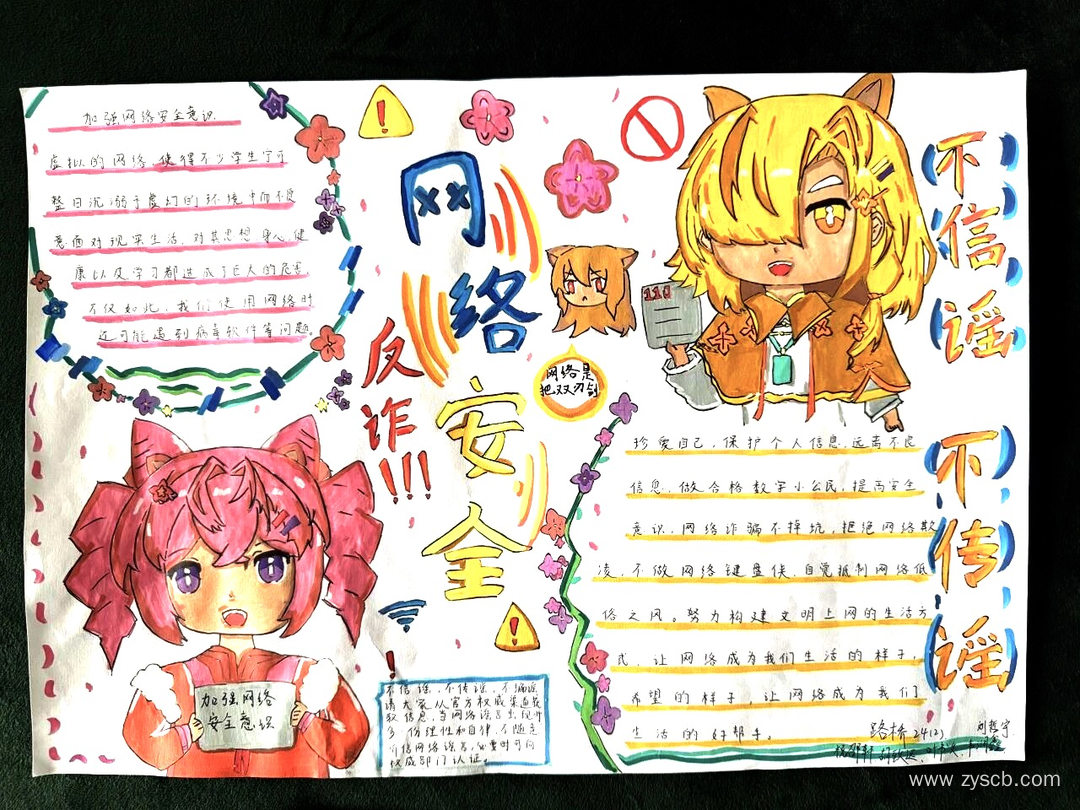 加强网络安全意识
虚拟的网络使得不少学生宁可
整日沉溺于虚幻的环境中而不愿
意面对现实生活,对其思想身心健
康以及学习都造成了巨大的危害
不仅如此,我们使用网络时
还可能遇到病毒软件等问题。
网络安全
反诈!!!
110
网络是
把双刃剑
不信谣
不传谣
珍爱自己,保护个人信息,远离不良
信息,做合格数字小公民,提高安全
意识,网络诈骗不掉坑,拒绝网络欺
凌,不做网络键盘侠,自觉抵制网络低
俗之风。努力构建文明上网的生活方
式,让网络成为我们生活的样子,
希望的样子,让网络成为我们
生活的好帮手。
路桥24(2)
加强网络
安全意识
不信谣,不传谣,不编谣
请大家从官方权威渠道获
取信息,当网络谣言出现时
多一份理性和自律,不随意
信网络谣言,必要时可向
权威部门认证。
www.zyscb.com